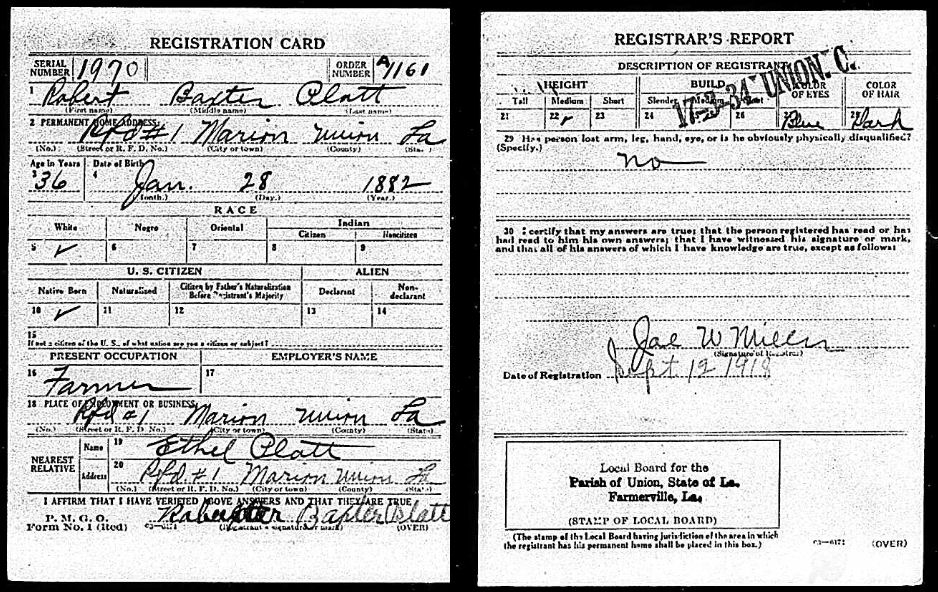 REGISTRATION CARD
SERIAL NUMBER 1970 ORDER NUMBER A1161
1 Robert Baxter Platt
(First name) (Middle name) (Last name)
2 PERMANENT HOME ADDRESS:
Rfd #1 Marion Union La
(No.) (Street or R. F. D. No.) (City or town) (County) (State)
Age in Years Date of Birth
3 36 4 Jan. 28 1882
(Month.) (Day.) (Year.)
RACE
White Negro Oriental Indian
Citizen Noncitizen
5 ✓ 6 7 8 9
U. S. CITIZEN ALIEN
Native Born Naturalized Citizen by Father's Naturalization Before Registrant's Majority Declarant Non-declarant
10 ✓ 11 12 13 14
15
If not a citizen of the U. S., of what nation are you a citizen or subject?
PRESENT OCCUPATION EMPLOYER'S NAME
16 Farmer 17
18 PLACE OF EMPLOYMENT OR BUSINESS:
Rfd #1 Marion Union La
(No.) (Street or R. F. D. No.) (City or town) (County) (State)
NEAREST RELATIVE Name 19 Ethel Platt
Address 20 Rfd. #1 Marion Union La
(No.) (Street or R. F. D. No.) (City or town) (County) (State)
I AFFIRM THAT I HAVE VERIFIED ABOVE ANSWERS AND THAT THEY ARE TRUE
P. M. G. O.
Form No. 1 (Red) 03—6171 Baxter Platt
(Registrant's signature or mark) (OVER)
REGISTRAR'S REPORT
DESCRIPTION OF REGISTRANT
HEIGHT BUILD COLOR OF EYES COLOR OF HAIR
Tall Medium Short Slender Medium Stout
21 22 ✓ 23 24 25 26 27 Blue 28 Dark
17-3-34 UNION. C.
29 Has person lost arm, leg, hand, eye, or is he obviously physically disqualified?
(Specify.)
no
30 I certify that my answers are true; that the person registered has read or has
had read to him his own answers; that I have witnessed his signature or mark,
and that all of his answers of which I have knowledge are true, except as follows:
W Miller
(Signature of Registrar)
Date of Registration Sept 12 1918
Local Board for the
Parish of Union, State of La.
Farmerville, La.
(STAMP OF LOCAL BOARD)
(The stamp of the Local Board having jurisdiction of the area in which
the registrant has his permanent home shall be placed in this box.)
03—6171 (OVER)